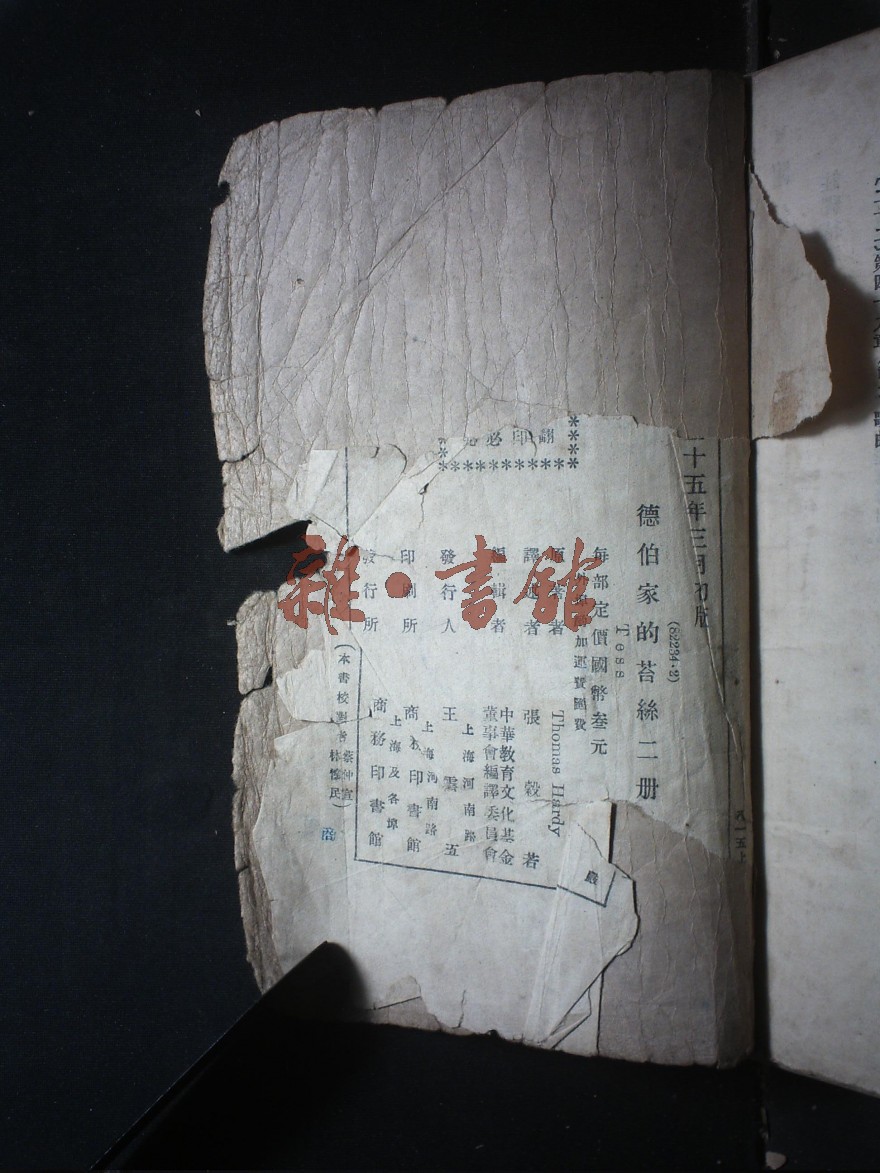 十五年三月初版
(62234·2)
德伯家的苔絲二册
Tess
每部定價國幣叁元
加運費匯費
原著者 Thomas Hardy
譯述者 張穀若
編輯者 中華教育文化基金董事會編譯委員會
發行人 王雲五
上海河南路
印刷所 商務印書館
上海河南路
發行所 商務印書館
上海及各埠
(本書校對者 蔡仲宣 林懷民)
翻印必究
嚴
雜·書館